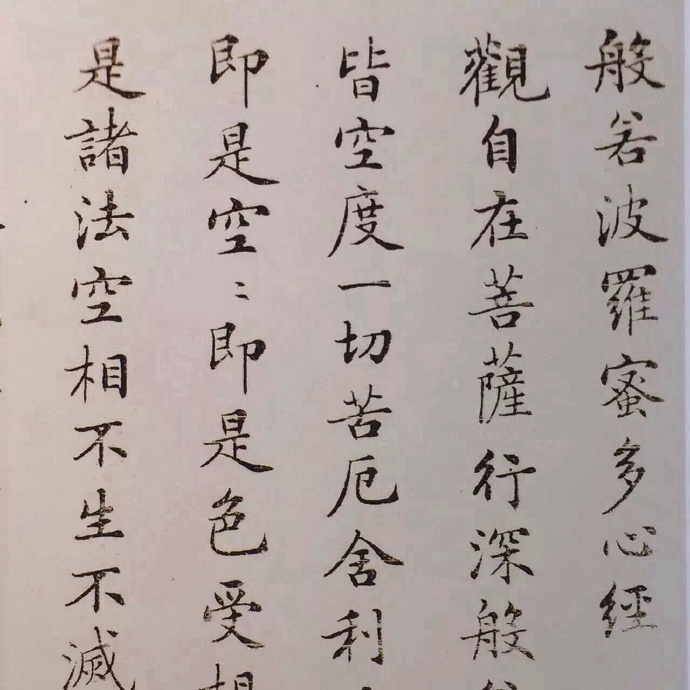 般若波羅蜜多心經
觀自在菩薩行深般
皆空度一切苦厄舍利
即是空〻即是色受想
是諸法空相不生不滅